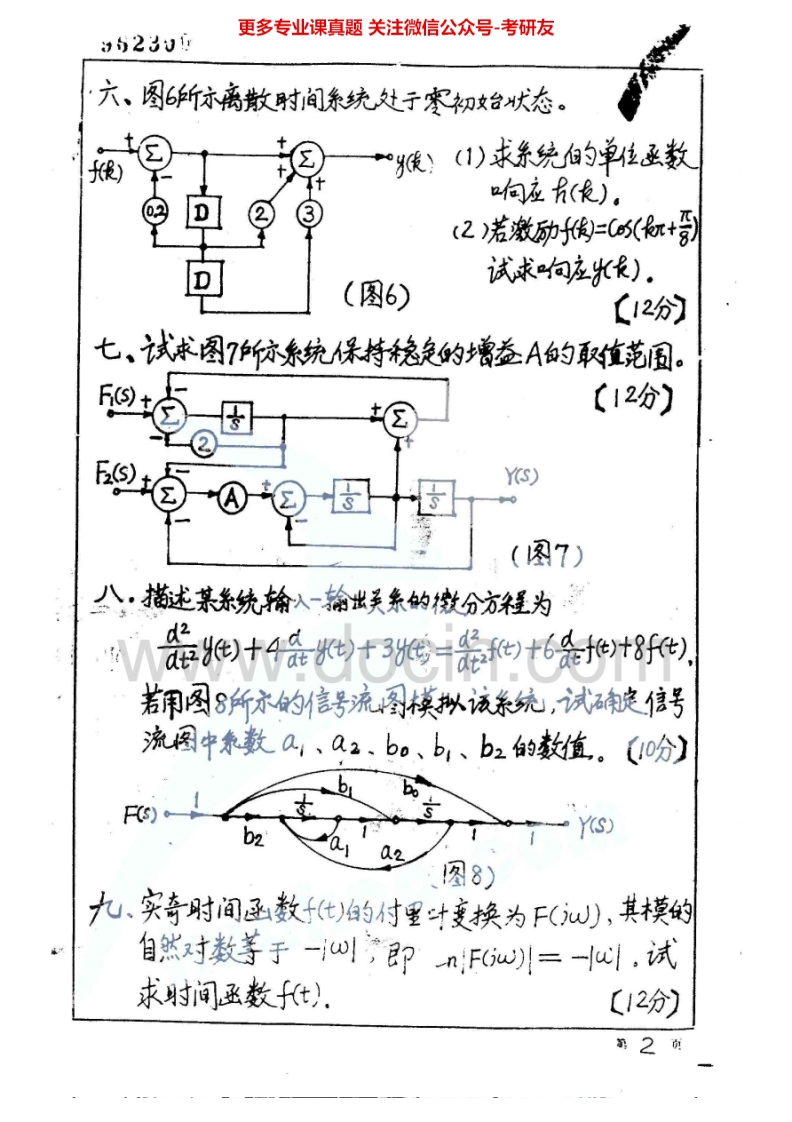 更多专业课真题 关注微信公众号-考研友
六、图6所示离散时间系统处于零初始状态。
f(k) + Σ − + + Σ + y(k)
0.2 D 2 3
D
(图6)
(1)求系统的单位函数
响应h(k)。
(2)若激励f(k)=cos(kπ+π/8)
试求响应y(k)。
【12分】
七、试求图7所示系统保持稳定的增益A的取值范围。
【12分】
F₁(s) + − Σ − 1/s + Σ +
2
F₂(s) + − Σ − A + Σ − 1/s 1/s Y(s)
(图7)
八、描述某系统输入-输出关系的微分方程为
d²/dt² y(t) + 4 d/dt y(t) + 3y(t) = d²/dt² f(t) + 6 d/dt f(t) + 8f(t),
若用图8所示的信号流图模拟该系统,试确定信号
流图中系数 a₁、a₂、b₀、b₁、b₂的数值。【10分】
F(s) 1 b₂ 1/s a₁ 1 b₁ 1/s a₂ 1 b₀ 1 Y(s)
(图8)
九、实奇时间函数f(t)的付里叶变换为F(jω),其模的
自然对数等于 -|ω|,即 n|F(jω)| = -|ω|.试
求时间函数f(t).
【12分】
第 2 页